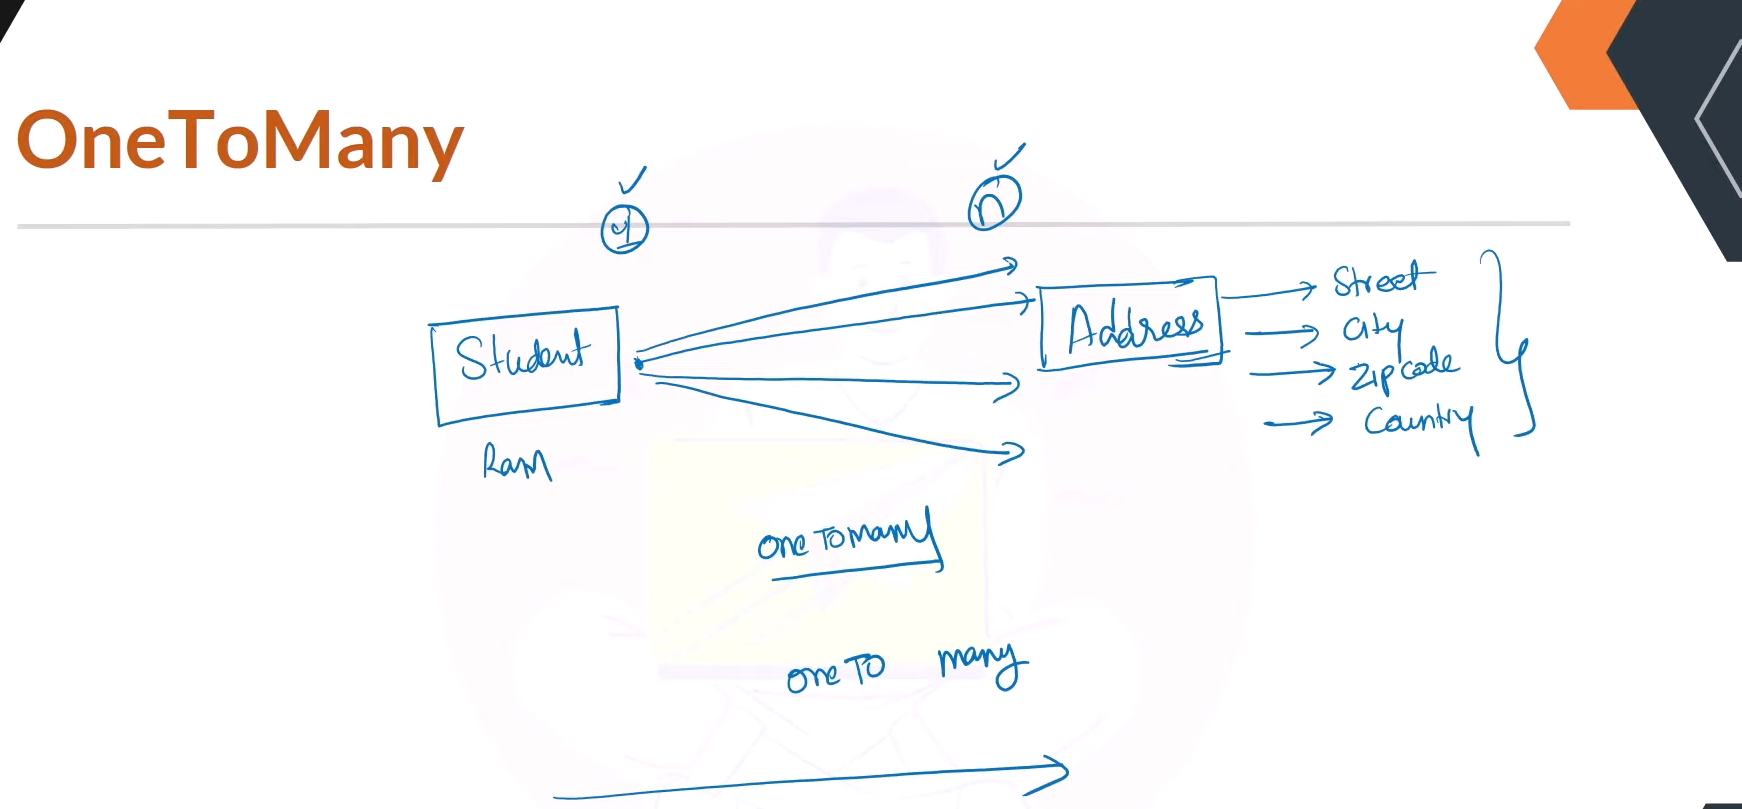 OneToMany
1
n
Student
Address
Street
City
Zipcode
Country
Ram
oneTomany
oneTo many